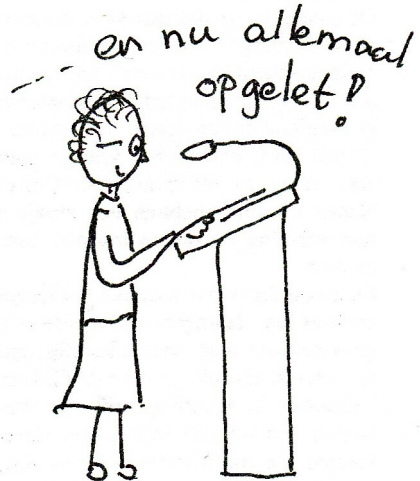 en nu allemaal
opgelet!